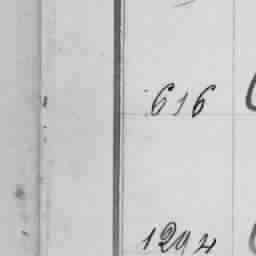 616
1294